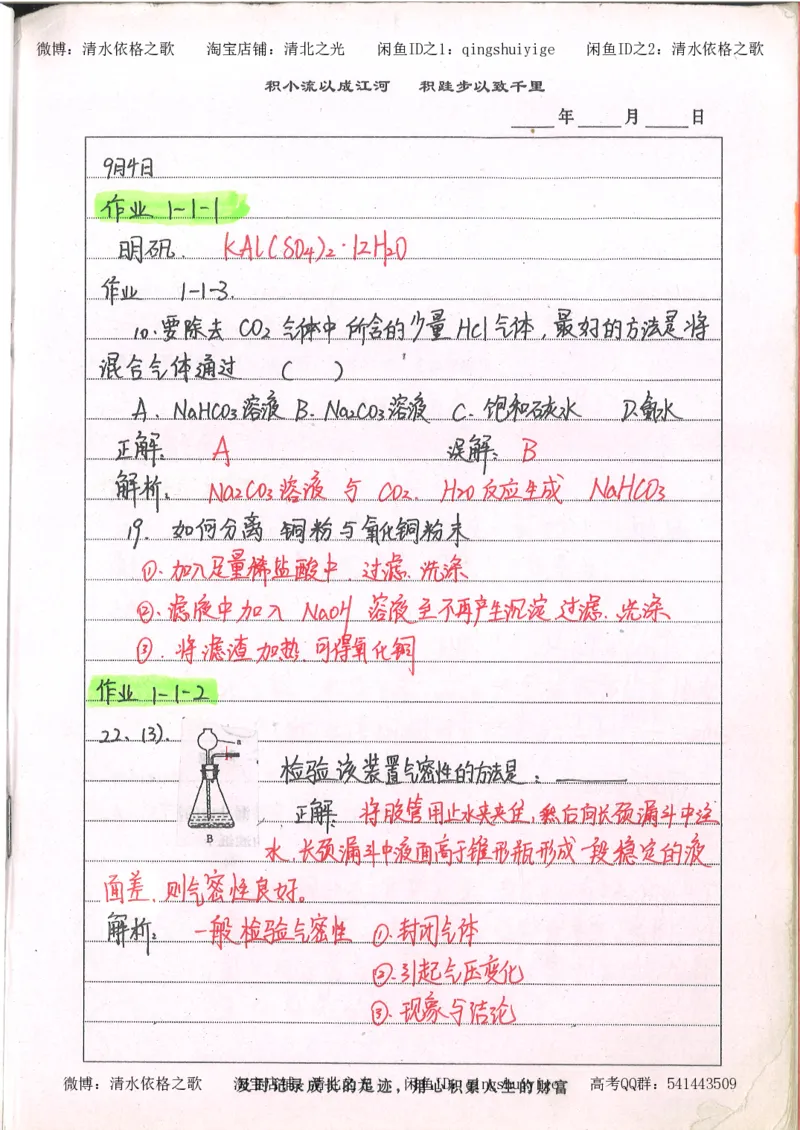 微博：清水依格之歌 淘宝店铺：清北之光 闲鱼ID之1：qingshuiyige 闲鱼ID之2：清水依格之歌
积小流以成江河 积跬步以致千里
年 月 日
9月4日
作业 1-1-1
明矾. KAl(SO4)2·12H2O
作业 1-1-3.
10.要除去 CO2 气体中 所含的少量 HCl 气体，最好的方法是将
混合气体通过 ( )
A. NaHCO3溶液 B. Na2CO3溶液 C. 饱和石灰水 D.氨水
正解: A 误解: B
解析: Na2CO3溶液 与 CO2. H2O反应生成 NaHCO3
19. 如何分离 铜粉与氧化铜粉末
①.加入足量稀盐酸中.过滤.洗涤
②.滤液中加入 NaOH 溶液至不再产生沉淀 过滤.洗涤
③.将滤渣加热.可得氧化铜
作业 1-1-2
22、(3).
a
B
检验该装置气密性的方法是: ______
正解: 将胶管用止水夹夹住,然后向长颈漏斗中注
水,长颈漏斗中液面高于锥形瓶形成一段稳定的液
面差.则气密性良好。
解析: 一般检验气密性 ①.封闭气体
②.引起气压变化
③.现象与结论
及时记录成长的足迹，用心积累人生的财富
微博：清水依格之歌 淘宝店铺：清北之光 闲鱼ID：qingshuiyige 高考QQ群：541443509